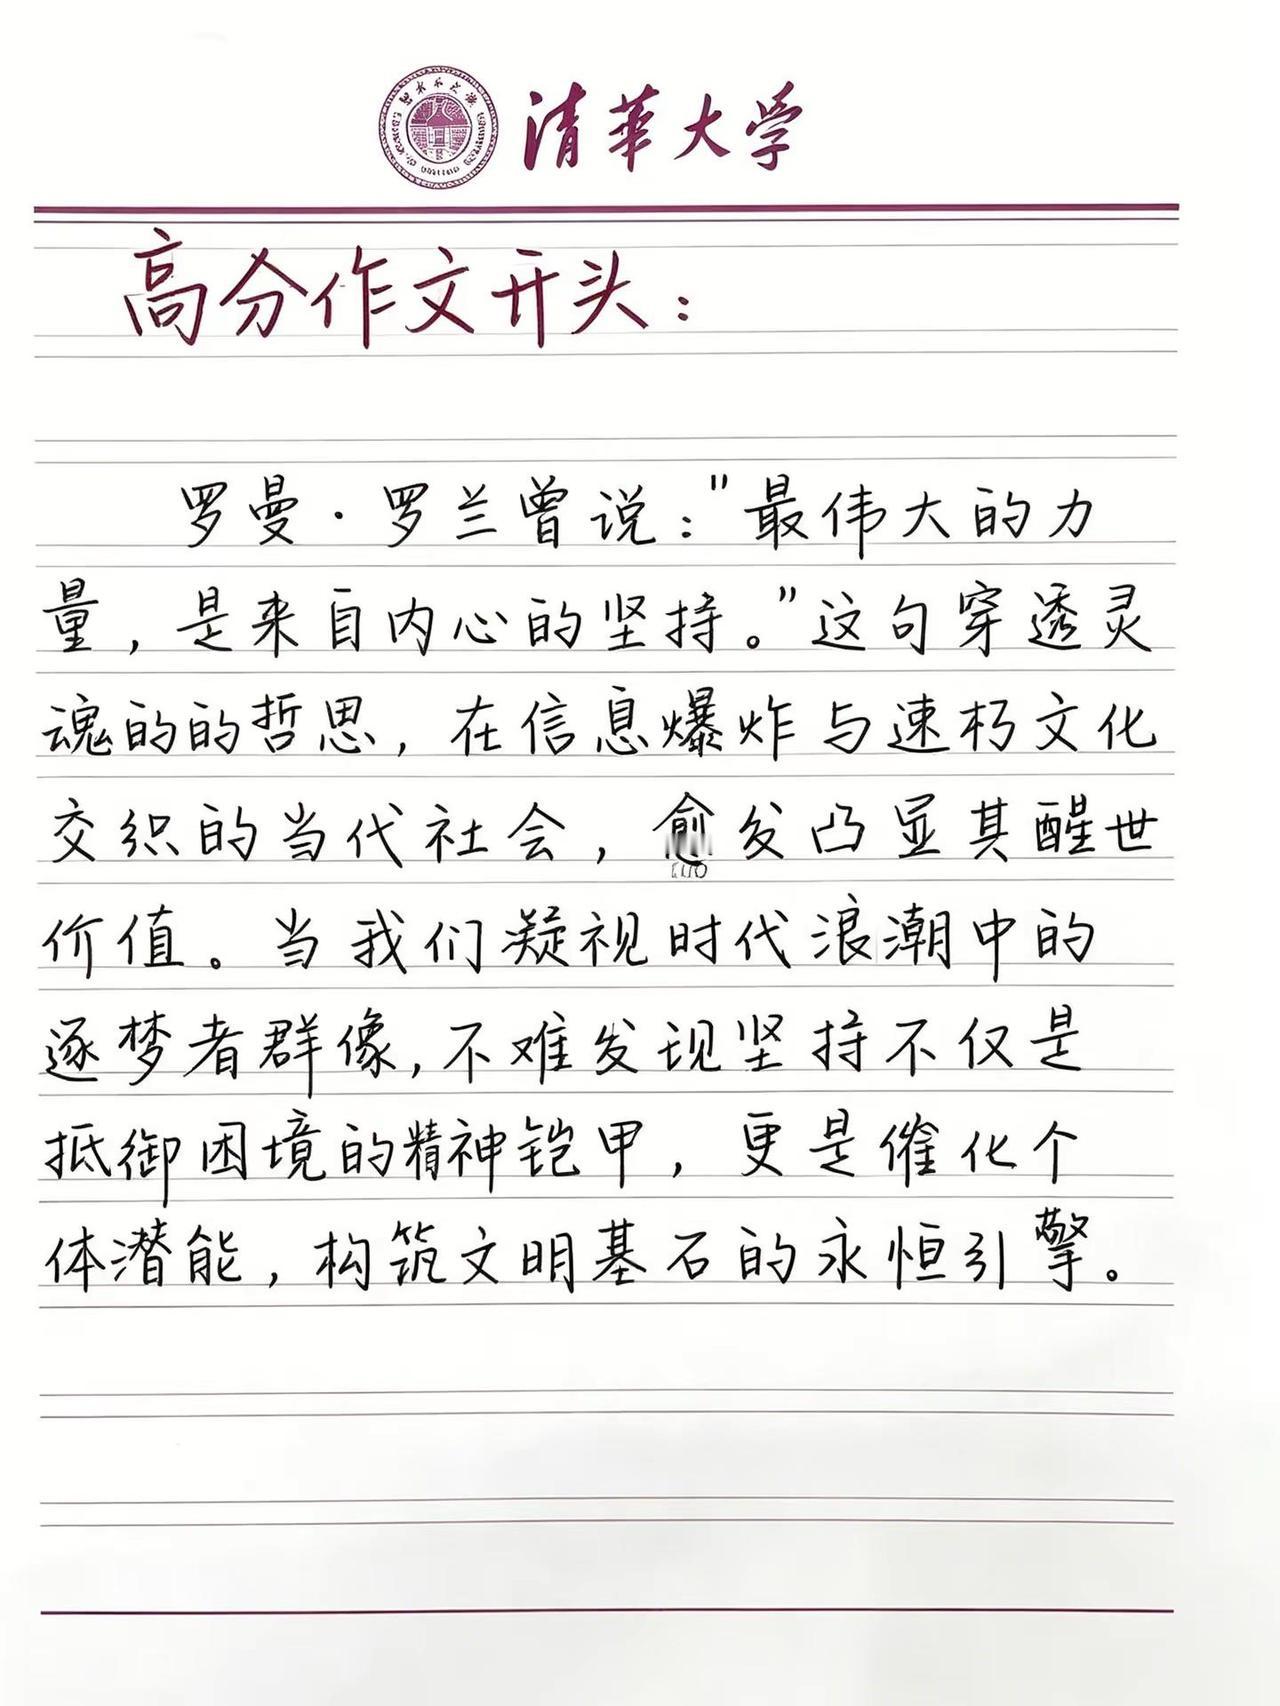 清華大学
高分作文开头：
罗曼·罗兰曾说："最伟大的力
量，是来自内心的坚持。"这句穿透灵
魂的的哲思，在信息爆炸与速朽文化
交织的当代社会，愈发凸显其醒世
价值。当我们凝视时代浪潮中的
逐梦者群像，不难发现坚持不仅是
抵御困境的精神铠甲，更是催化个
体潜能，构筑文明基石的永恒引擎。